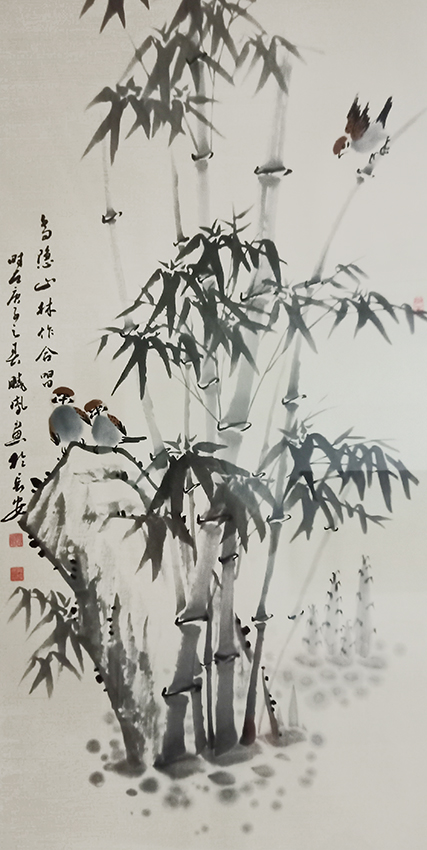 鸟隐山林作合唱
时在庚子之春 凤画於长安